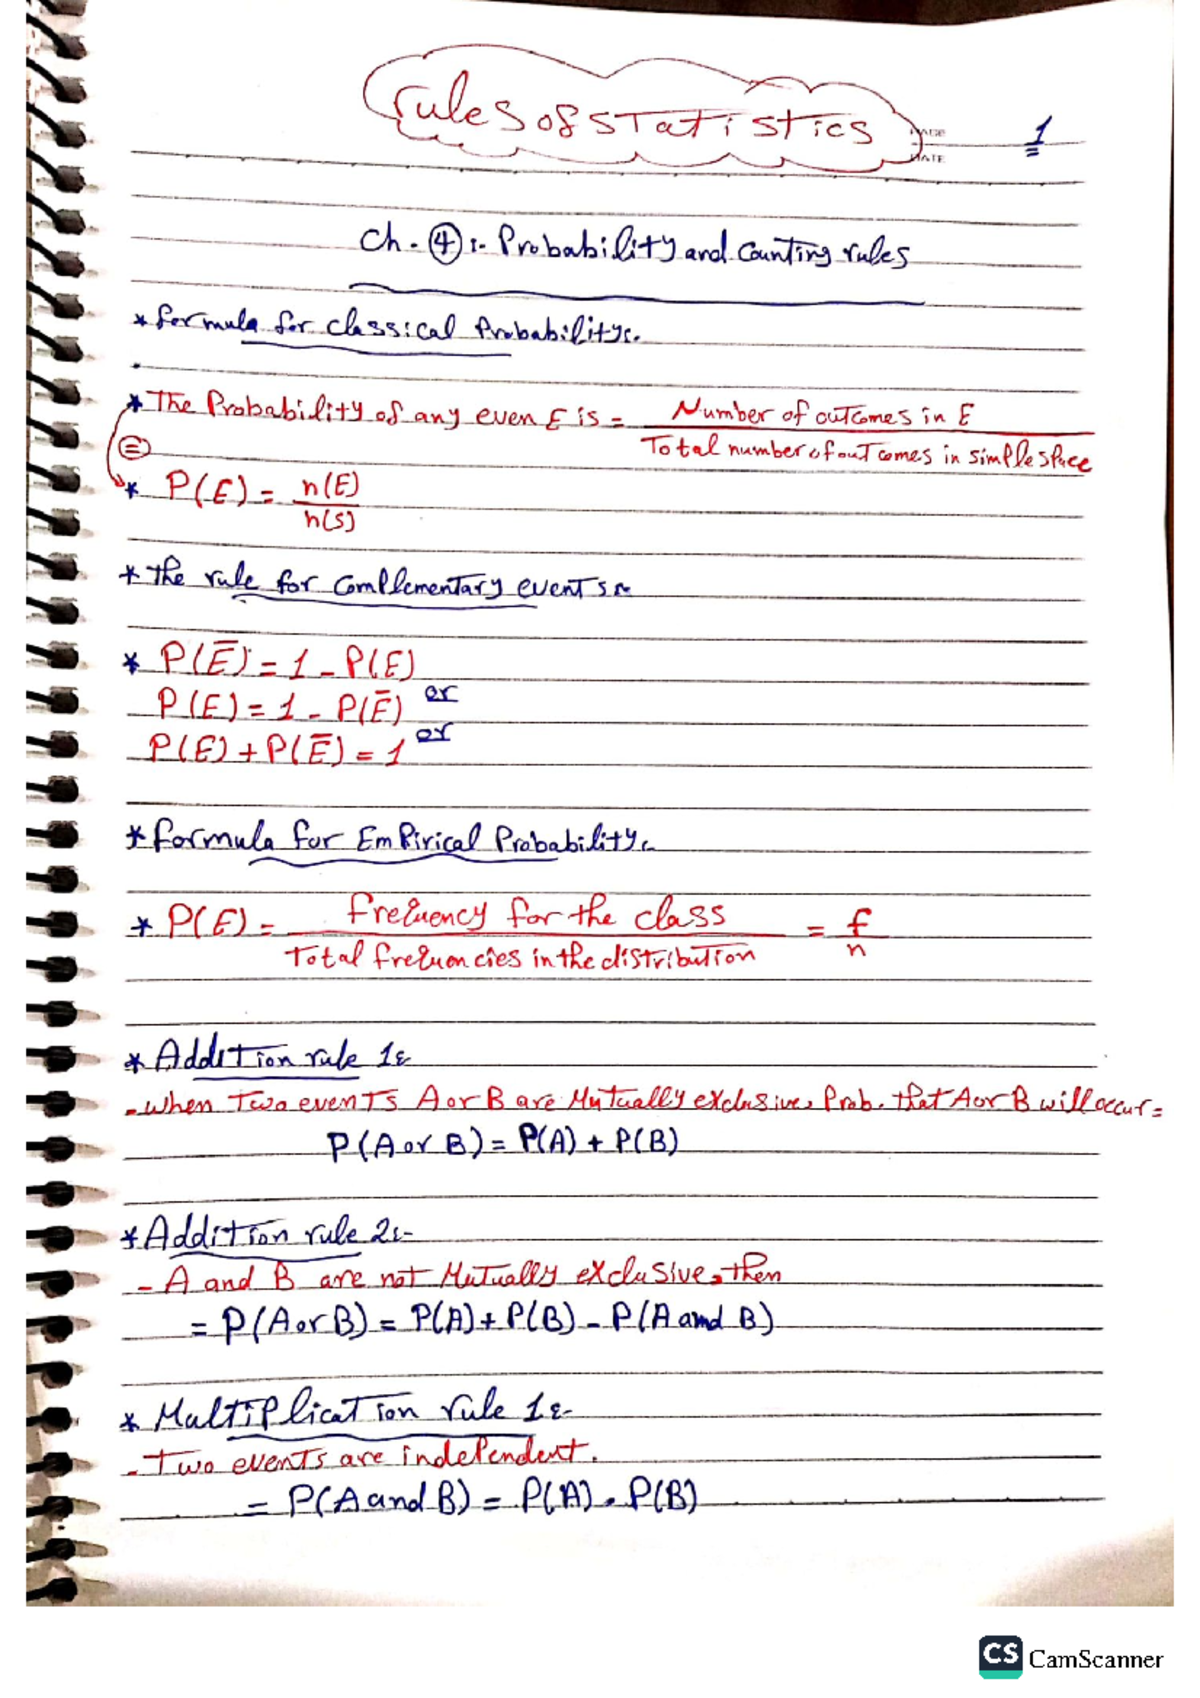 rules of statistics
PAGE 1
DATE
Ch. ④:- Probability and Counting rules
* formula for classical Probability:.
* The Probability of any even E is = Number of outcomes in E
Total number of outcomes in simple space
=
* P(E) = n(E)
n(s)
* The rule for Complementary events:-
* P(Ē) = 1 - P(E)
P(E) = 1 - P(Ē) or
P(E) + P(Ē) = 1 or
* formula for Empirical Probability:.
* P(E) = frequency for the class = f
Total frequencies in the distribution n
* Addition rule 1:-
- when Two events A or B are Mutually exclusive, Prob. that A or B will occur =
P(A or B) = P(A) + P(B)
* Addition rule 2:-
- A and B are not Mutually exclusive, then
= P(A or B) = P(A) + P(B) - P(A amd B)
* Multiplication rule 1:-
- Two events are independent.
= P(A and B) = P(A) . P(B)
CS CamScanner